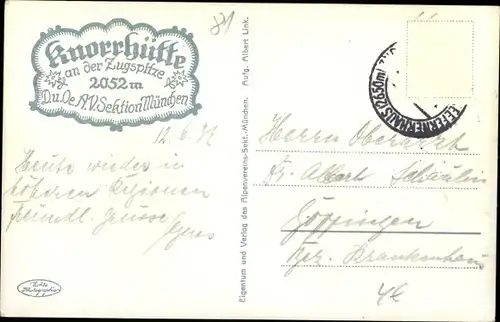 Knorrhütte
an der Zugspitze
2052 m
D.u.Oe.A.V. Sektion München
81
Heute wieder in
höheren Regionen
Freundl. Grüsse
Echte
Photographie
Eigentum und Verlag des Alpenvereins-Sekt.-München. Aufg. Albert Link.
(2650m)
Herrn Oberarzt
Dr. Albert
Göppingen
Bez. Krankenhaus